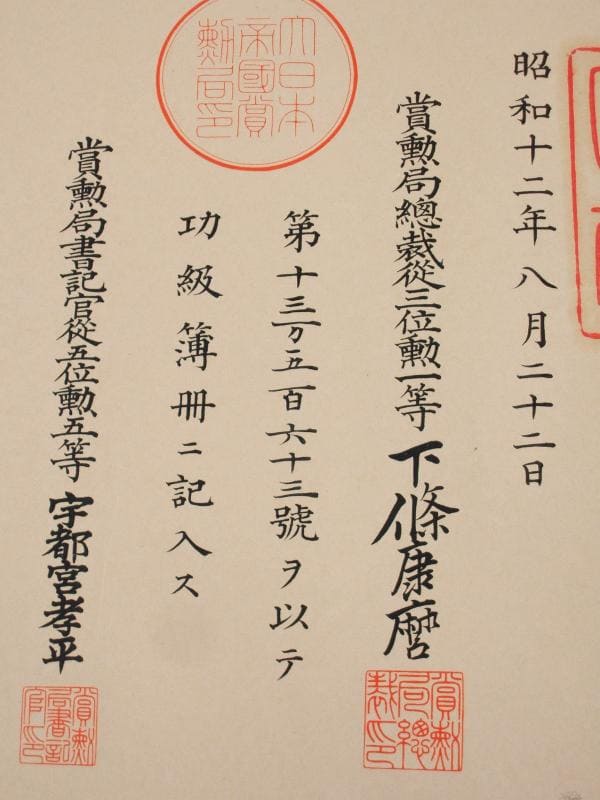 昭和十二年八月二十二日
賞勲局總裁從三位勲一等下條康麿
第十三万五百六十三號ヲ以テ
功級簿冊ニ記入ス
賞勲局書記官從五位勲五等宇都宮孝平
大日本帝國賞勲局印
賞勲局總裁印
賞勲局書記官印